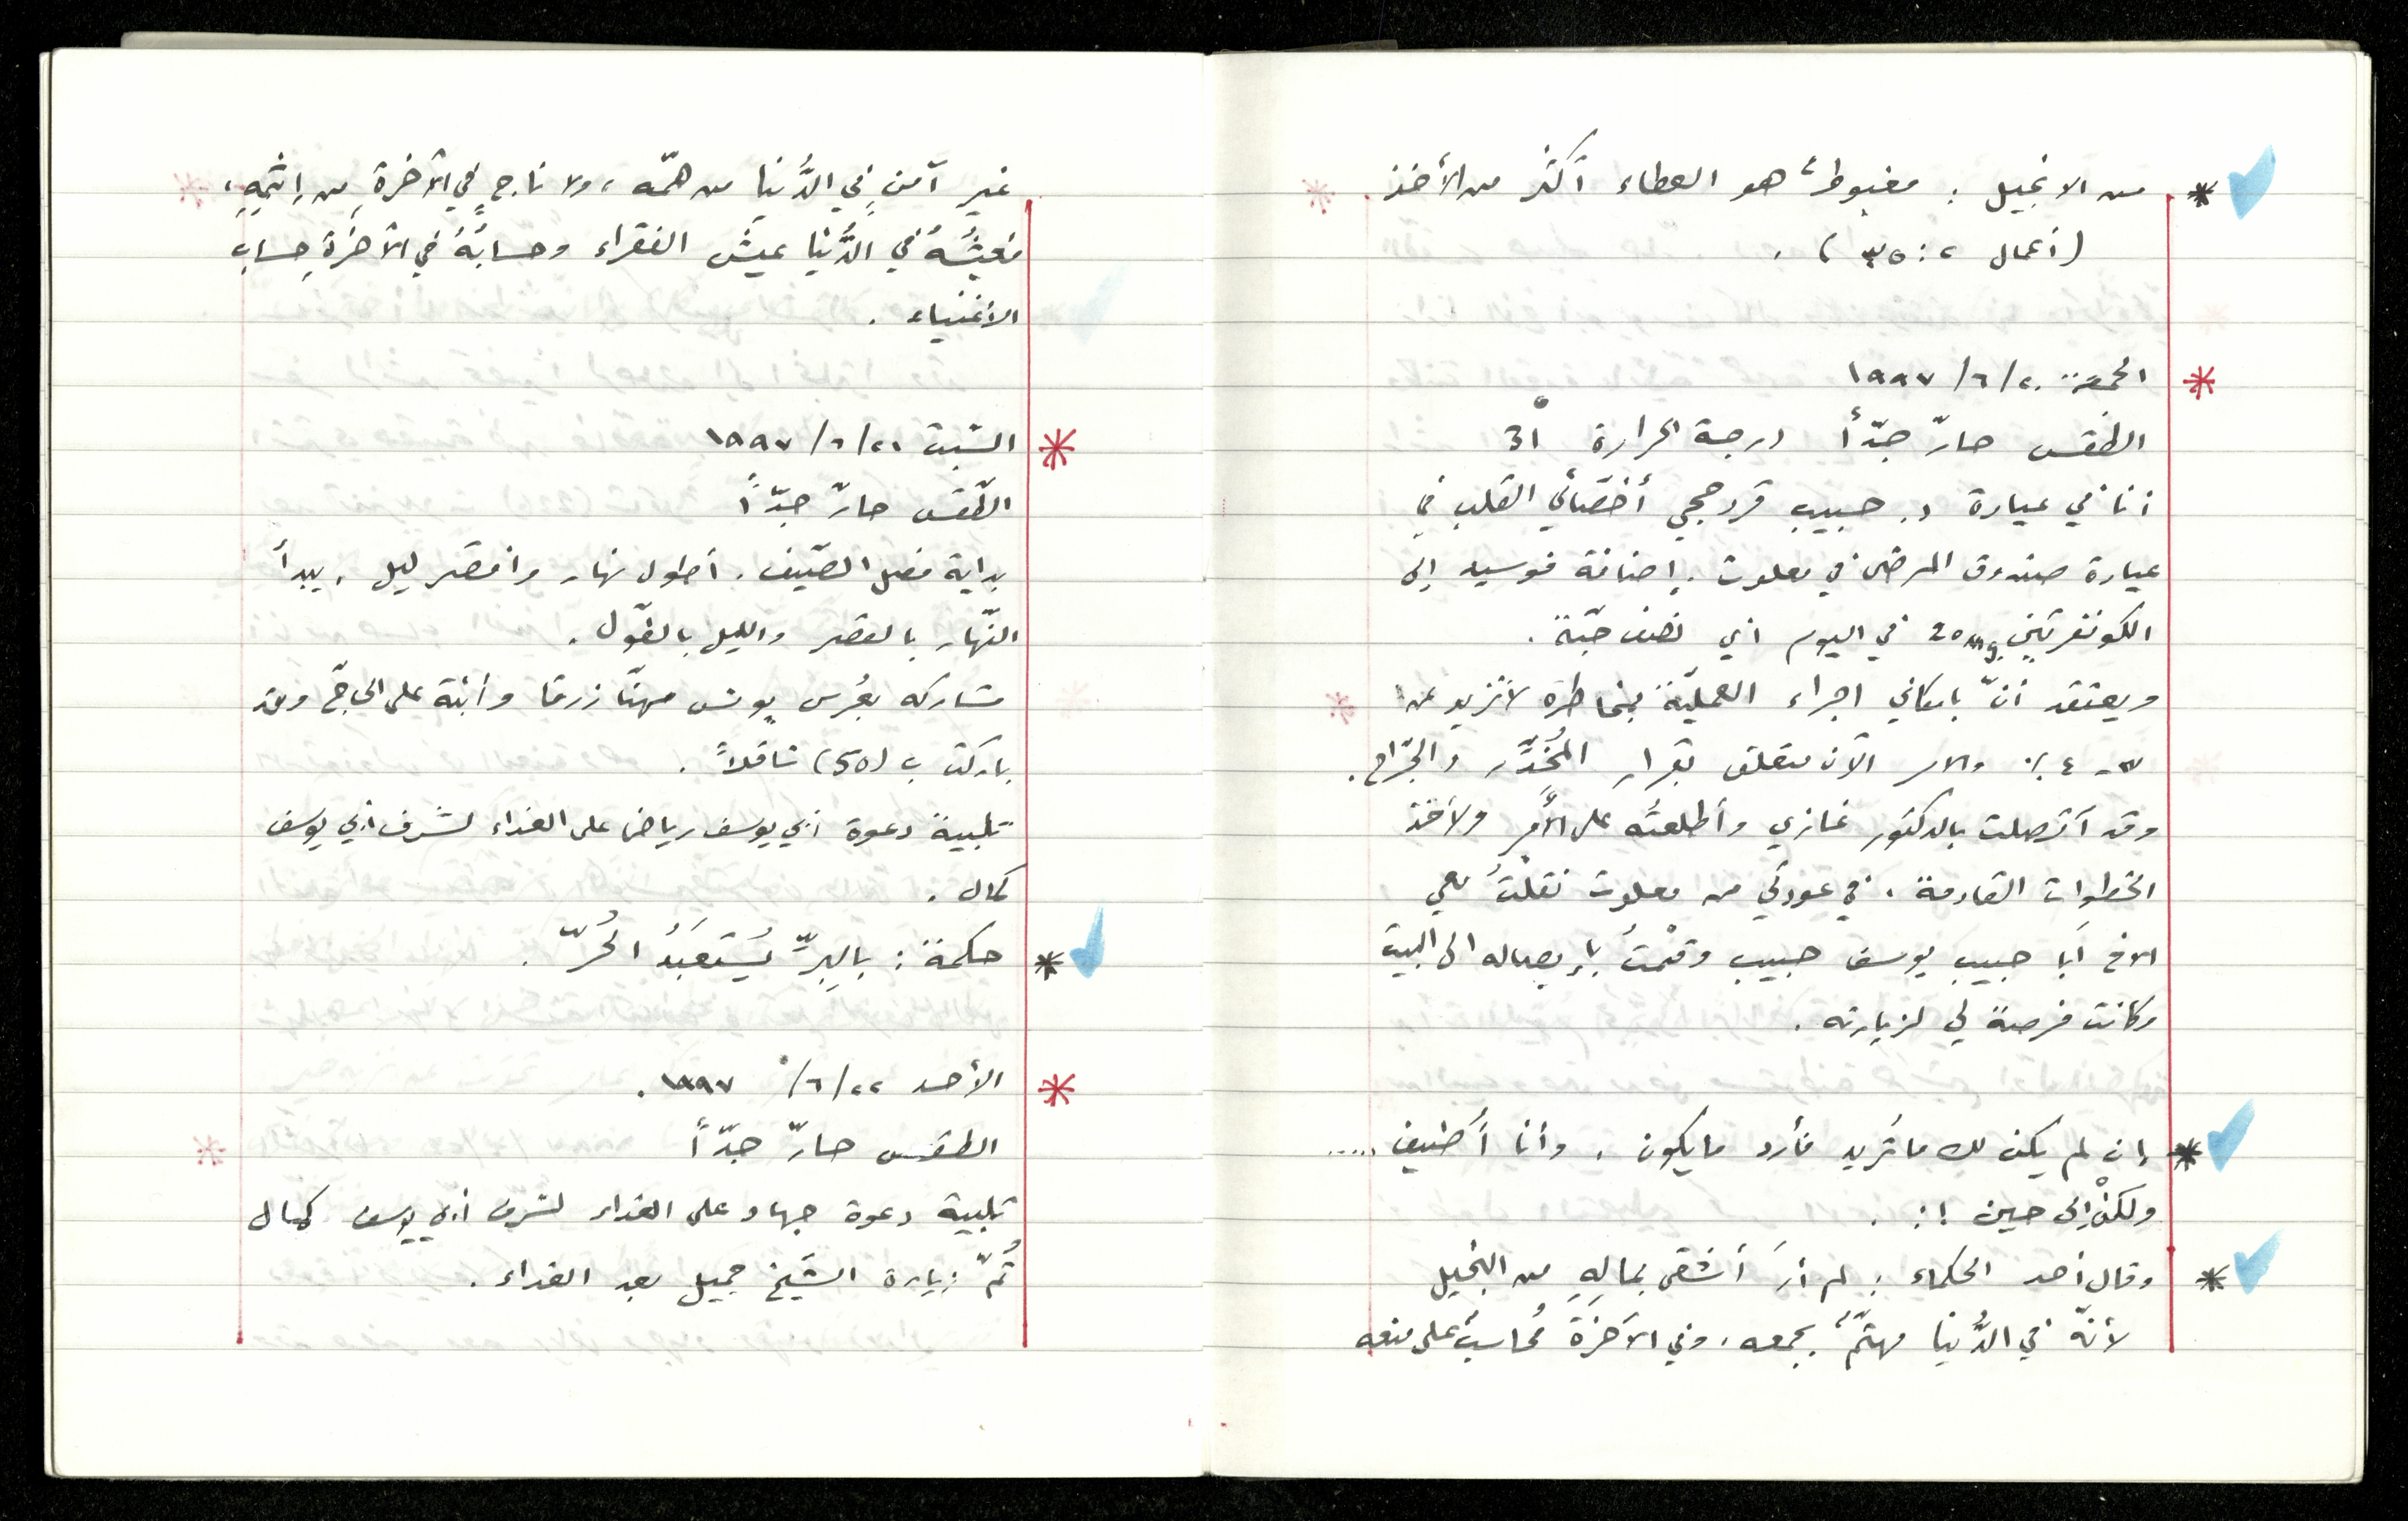 * من الانجيل : مغبوطٌ هو العطاء أكثر من الأخذ
(أعمال ٢ : ٣٥) .
* الجمعة ٢٠/٦/١٩٩٧
الطقس حارّ جدّاً درجة الحرارة 31°
أنا في عيادة د. حبيب قردحجي أخصّائي القلب في
عيادة صندوق المرضى في معلوت . إضافة فوسيد إلى
الكونفرتين 20mg في اليوم أي نصف حبّة .
ويعتقد أنّ بامكاني اجراء العمليّة بمخاطرة لا تزيد عن
٣-٤ ٪ والامر الآن متعلق بقرار المُخدِّر والجرّاح .
وقد آتصلت بالدكتور غازي وأطلعتُه على الأمر ولأخذ
الخطوات القادمة . في عودتي من معلوت نقلْتُ معي
الاخ أبا حبيب يوسف حبيب وقمْتُ بإيصاله الى البيت
وكانت فرصة لي لزيارته .
* إن لم يكن لك ما تُريد فأرد ما يكون . وأنا أُضيف .....
ولكنْ إلى حين !: .
* وقال أحد الحكماء : لم أرَ أشقى بمالِهِ من البخيل
لأنّه في الدُّنيا مهتمٌّ بجمعه ، وفي الآخرَة مُحاسبٌ على منعه
غير آمنٍ في الدُّنيا من همّه ، ولا ناجٍ في الآخرةِ من إثمِهِ ،
فعيشُهُ في الدُّنيا عيشُ الفقراء وحسابُهُ في الآخرَةِ حساب
الأغنياء .
* السّبت ٢١/٦/١٩٩٧
الطّقس حارّ جدّاً
بداية فصل الصّيف . أطول نهار وأقصر ليل . يبدأ
النّهار بالقصر والليل بالطّول .
مشاركه بعُرس يونس مهنّا زرقا وأبنة علي الحاجّ وقد
باركت ب (50) شاقلاً .
تلبية دعوة أبي يوسف رياض على الغداء لشرف أبي يوسف
كمال .
* حكمة : بالبِرِّ يُستَعبَدُ الحُرّ .
* الأحد ٢٢/٦/١٩٩٧ .
الطقس حارّ جدّاً
تلبية دعوة جهاد على الغداء لشرف أبي يوسف كمال
ثُمّ زيارة الشّيخ جميل بعد الغداء .